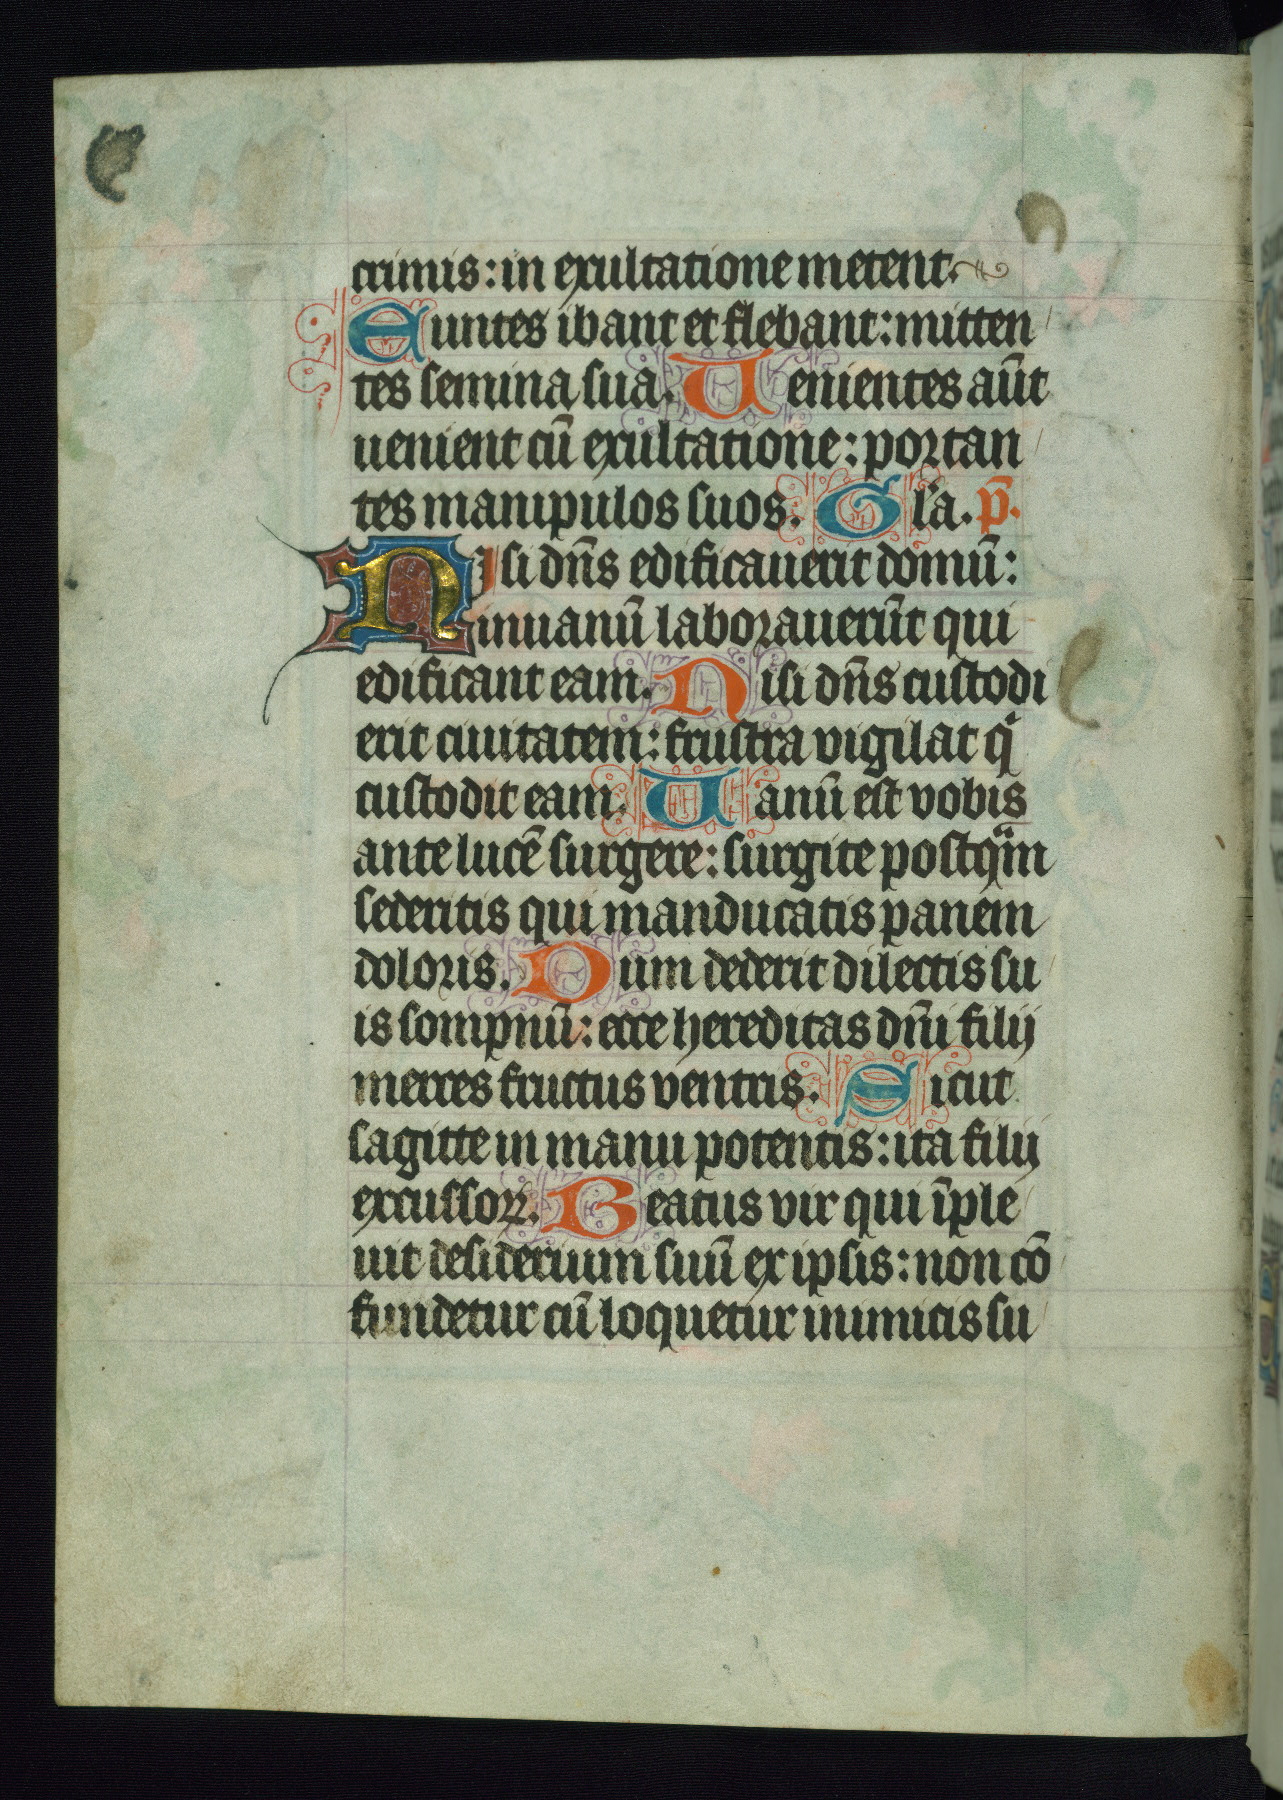 crimis: in exultatione metent.
Euntes ibant et flebant: mitten
tes semina sua. Uenientes aūt
uenient cū exultatione: portan
tes manipulos suos. Gl'a. p̄.
Nisi dn̄s edificauerit domū:
inuanū laborauerūt qui
edificant eam. Nisi dn̄s custodi
erit ciuitatem: frustra vigilat qͥ
custodit eam. Uanū est vobis
ante lucē surgere: surgite postqᵃm
sederitis qui manducatis panem
doloris. Dum dederit dilectis su
is sompnū: ecce hereditas dn̄i filij
merces fructus ventris. Sicut
sagitte in manu potentis: ita filij
excussoꝝ. Beatus vir qui īple
uit desiderium suū ex ipsis: non cō
fundetur cū loquetur inimicis su